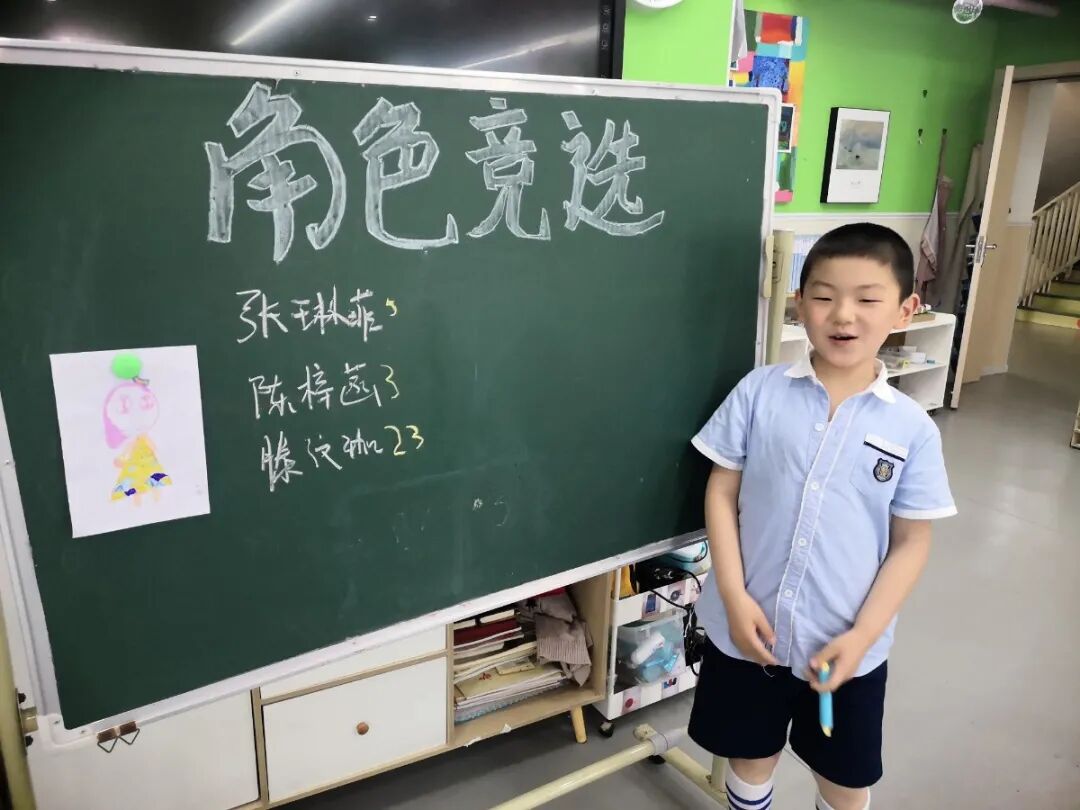 角色竞选
张琳菲 5
陈梓菡 3
滕汶珈 23